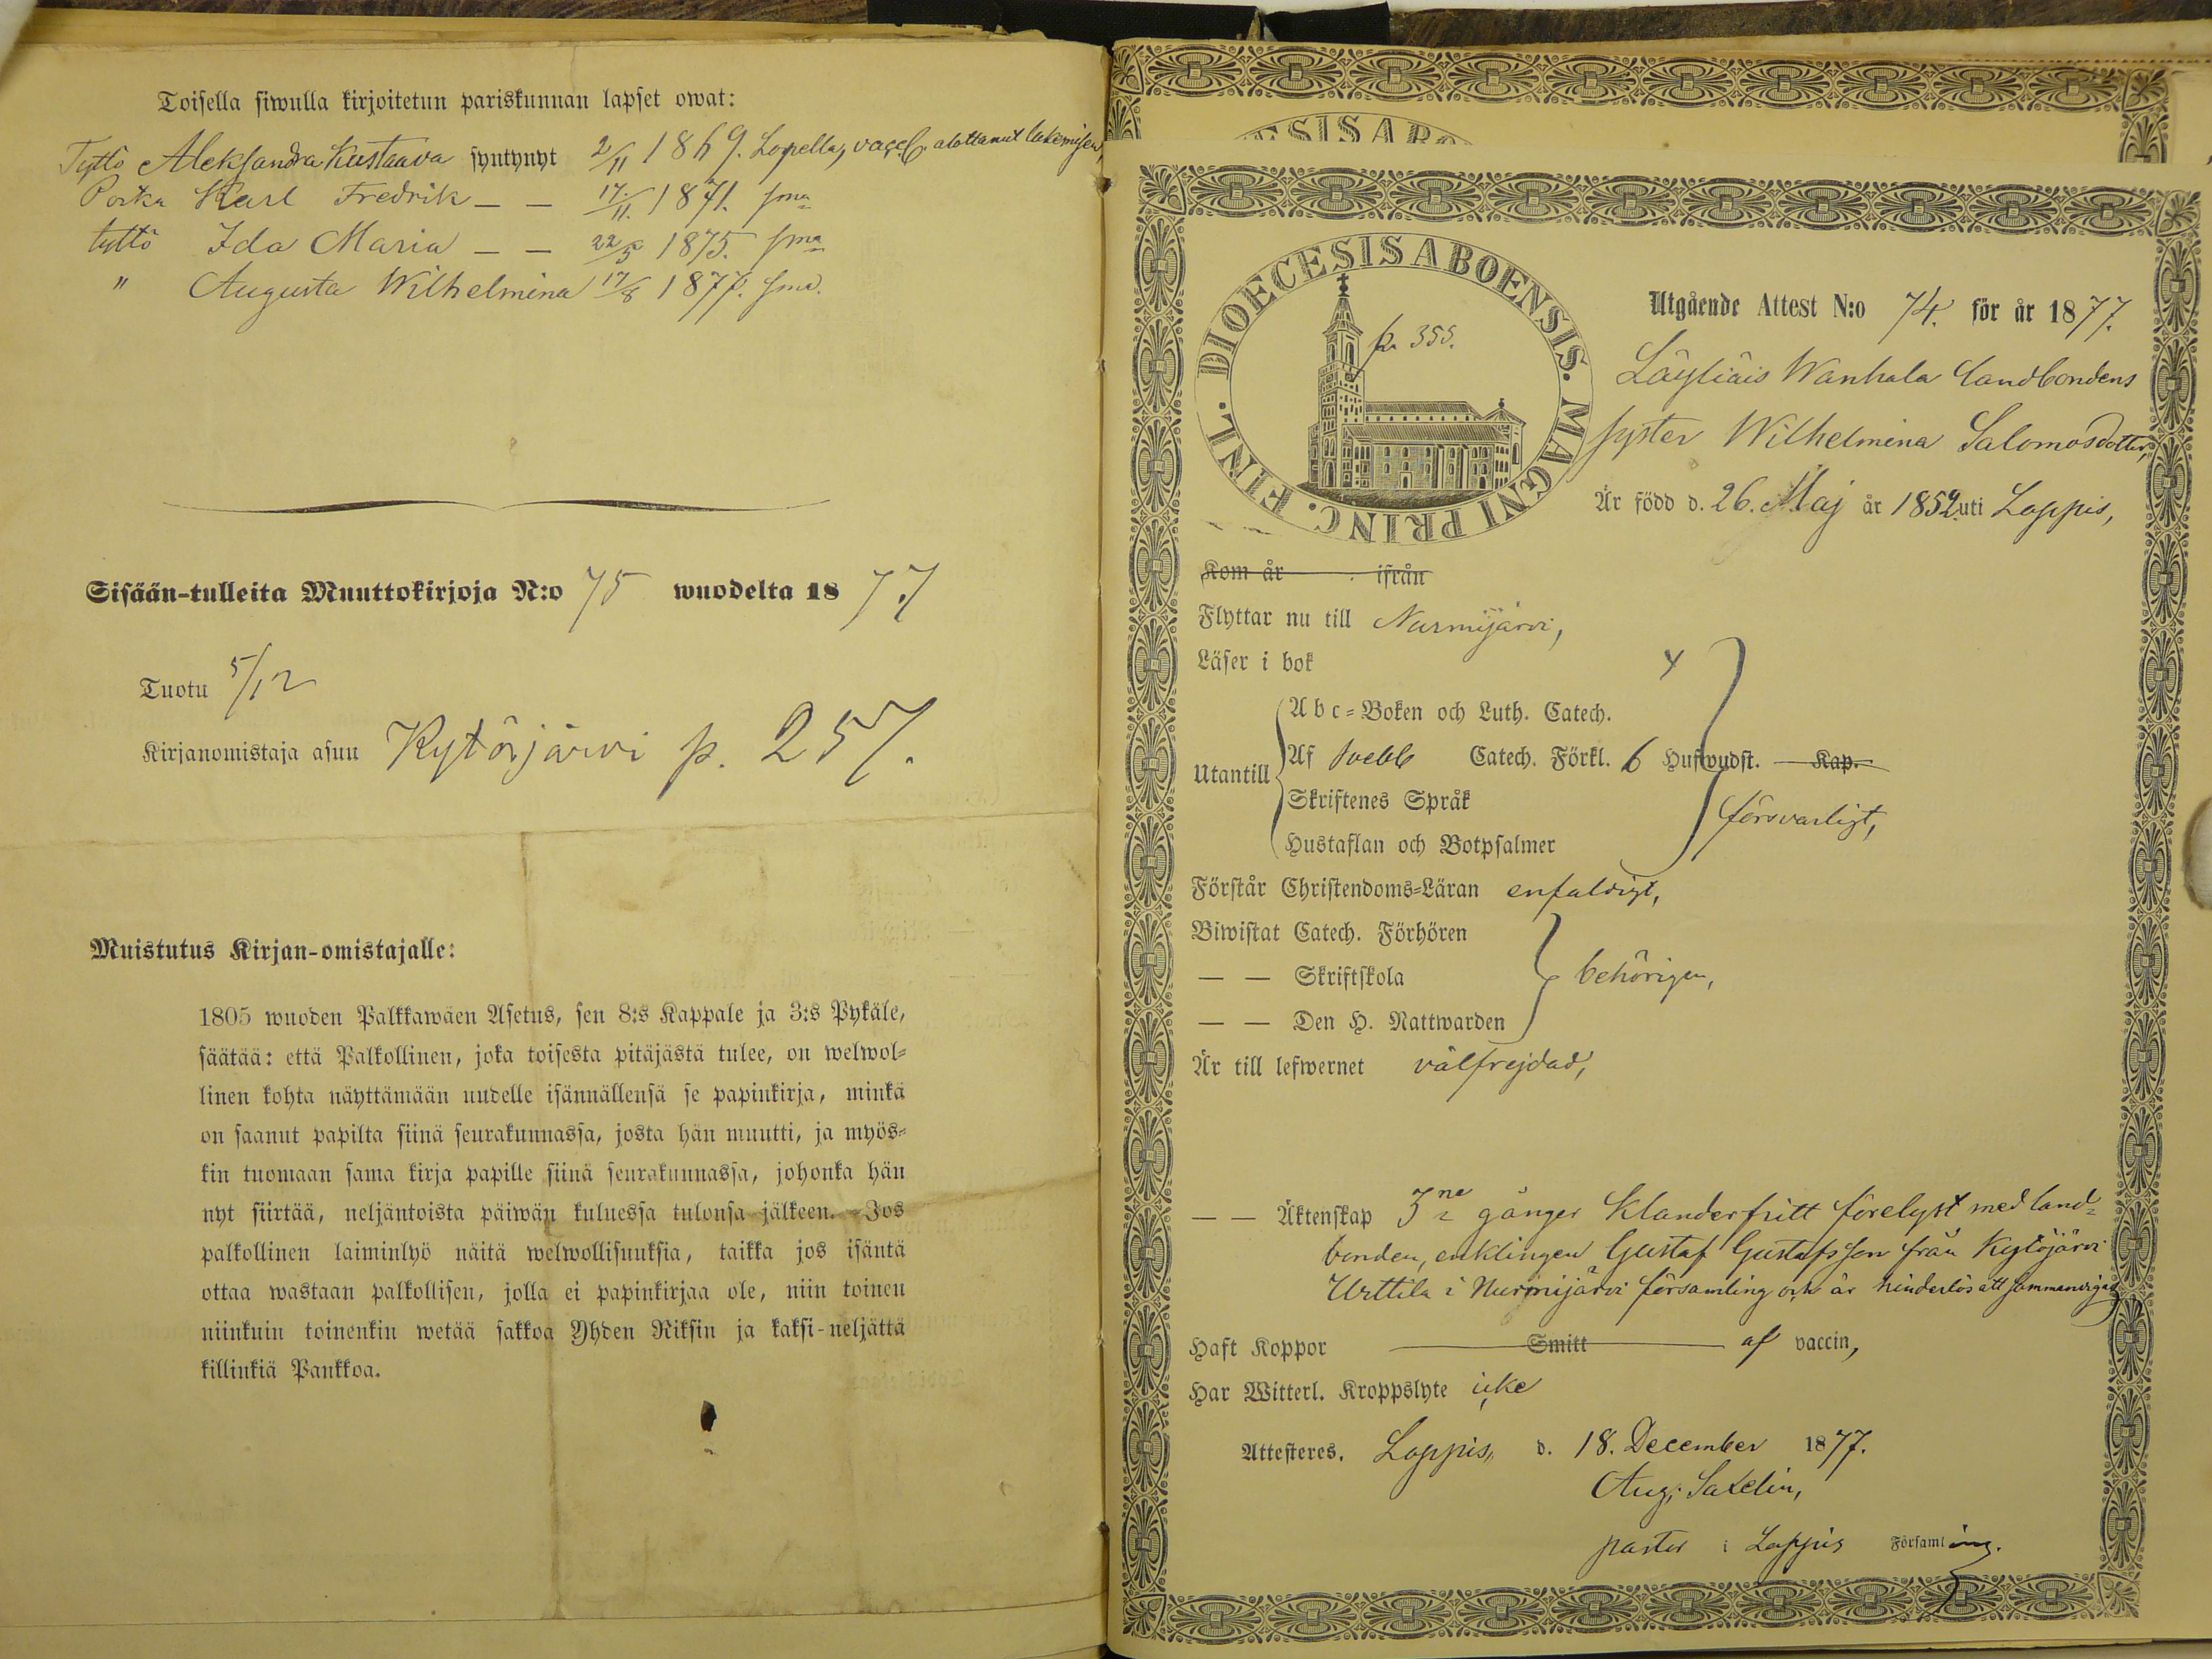 Toisella siwulla kirjoitetun pariskunnan lapset owat:
Tyttö Aleksandra Kustaava syntynyt 2/11 1869. Lopella, vacc. alottanut lukemisen,
Poika Karl Fredrik — — 17/11. 1871. sma
tyttö Ida Maria — — 22/5 1875. sma
" Augusta Wilhelmina 17/8 1877. sma.
Sisään-tulleita Muuttokirjoja N:o 75 wuodelta 1877
Tuotu 5/12
Kirjanomistaja asuu Kytöjärvi p. 257.
Muistutus Kirjan-omistajalle:
1805 wuoden Palkkawäen Asetus, sen 8:s Kappale ja 3:s Pykäle,
säätää: että Palkollinen, joka toisesta pitäjästä tulee, on welwol-
linen kohta näyttämään uudelle isännällensä se papinkirja, minkä
on saanut papilta siinä seurakunnassa, josta hän muutti, ja myös-
kin tuomaan sama kirja papille siinä seurakunnassa, johonka hän
nyt siirtää, neljäntoista päiwän kuluessa tulonsa jälkeen. Jos
palkollinen laiminlyö näitä welwollisuuksia, taikka jos isäntä
ottaa wastaan palkollisen, jolla ei papinkirjaa ole, niin toinen
niinkuin toinenkin wetää sakkoa Yhden Riksin ja kaksi-neljättä
killinkiä Pankkoa.
DIOECESIS ABOENSIS. MAGNI PRINC. FINL.
p. 355.
Utgående Attest N:o 74. för år 1877.
Läyliäis Wanhala landbondens
syster Wilhelmina Salomosdotter,
Är född d. 26. Maj år 1852 uti Loppis,
Kom år ifrån
Flyttar nu till Nurmijärvi,
Läser i bok
Abc-Boken och Luth. Catech.
Utantill Af Svebb Catech. Förkl. 6 Hufwudst. Kap.
Skriftenes Språk försvarligt,
Hustaflan och Botpsalmer
Förstår Christendoms-Läran enfaldigt,
Biwistat Catech. Förhören
— — Skriftskola behörigen,
— — Den H. Nattwarden
Är till lefwernet välfrejdad,
— — Äktenskap 3ne gånger klanderfritt förelyst med land-
bonden, enklingen Gustaf Gustafsson från Kytöjärvi
Urttila i Nurmijärvi församling och är hinderlös att sammanvigas
Haft Koppor Smitt af vaccin,
Har Witterl. Kroppslyte icke
Attesteres. Loppis, d. 18. December 1877.
Aug: Saxelin,
pastor i Loppis Församling.